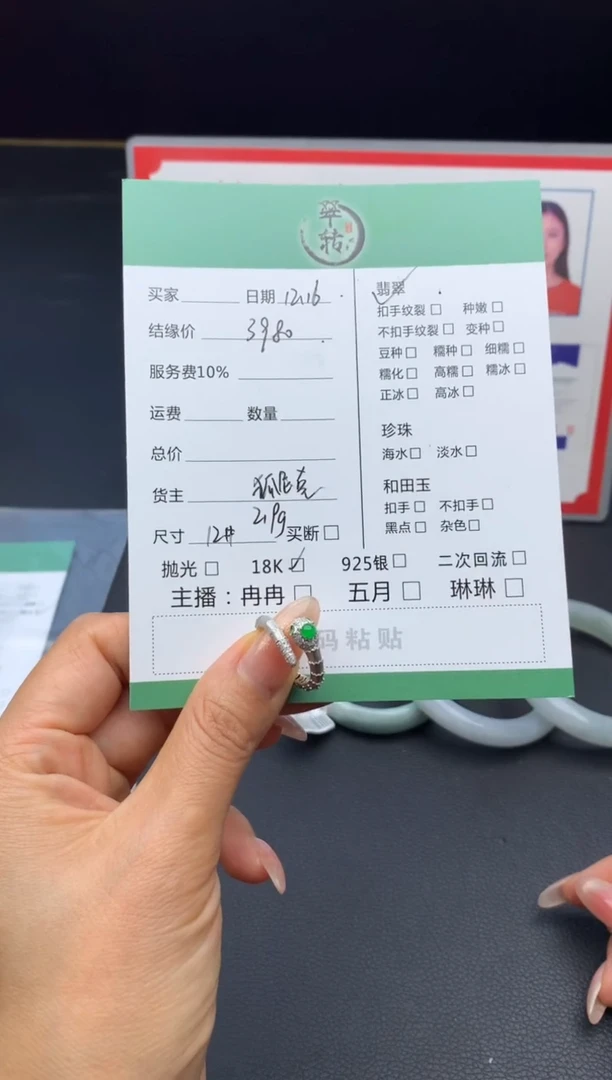 翠
转
买家 日期 12.16
结缘价 3980
服务费10%
运费 数量
总价
货主 狐尼克
2.19g
尺寸 12# 买断□
翡翠
扣手纹裂□ 种嫩□
不扣手纹裂□ 变种□
豆种□ 糯种□ 细糯□
糯化□ 高糯□ 糯冰□
正冰□ 高冰□
珍珠
海水□ 淡水□
和田玉
扣手□ 不扣手□
黑点□ 杂色□
抛光□ 18K☑ 925银□ 二次回流□
主播：冉冉□ 五月□ 琳琳□
码粘贴